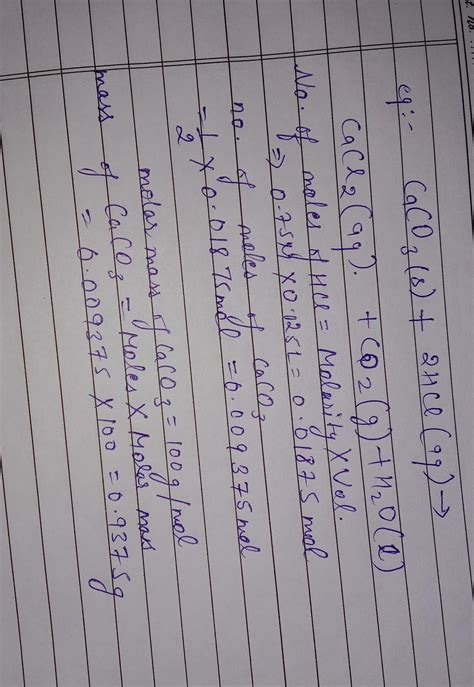 eq:- CaCO3(s) + 2HCl(aq) →
CaCl2(aq). + CO2(g) + H2O(l)
No. of moles of HCl = Molarity X Vol.
⇒ 0.75M X 0.025L = 0.01875 mol
no. of moles of CaCO3
= 1/2 X 0.01875mol = 0.009375mol
molar mass of CaCO3 = 100g/mol
mass of CaCO3 = Moles X Molar mass
= 0.009375 X 100 = 0.9375g